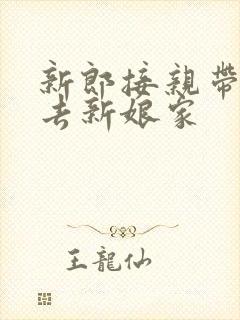 新郎接親帶
去新娘家
王龍仙